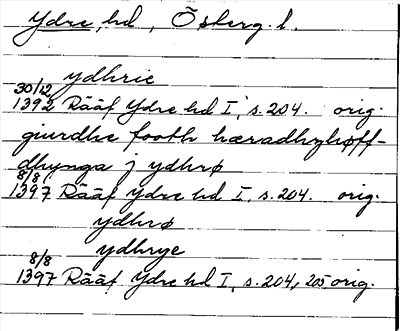 Ydre, hd, Österg. l.
ydhrie
30/12
1392 Rääf Ydre hd I, s. 204. orig.
giurdhe footh hæradhzhøff-
dhynga j ydhrø
8/8
1397 Rääf Ydre hd I, s. 204. orig.
ydhrø
ydhrye
8/8
1397 Rääf Ydre hd I, s. 204, 205 orig.